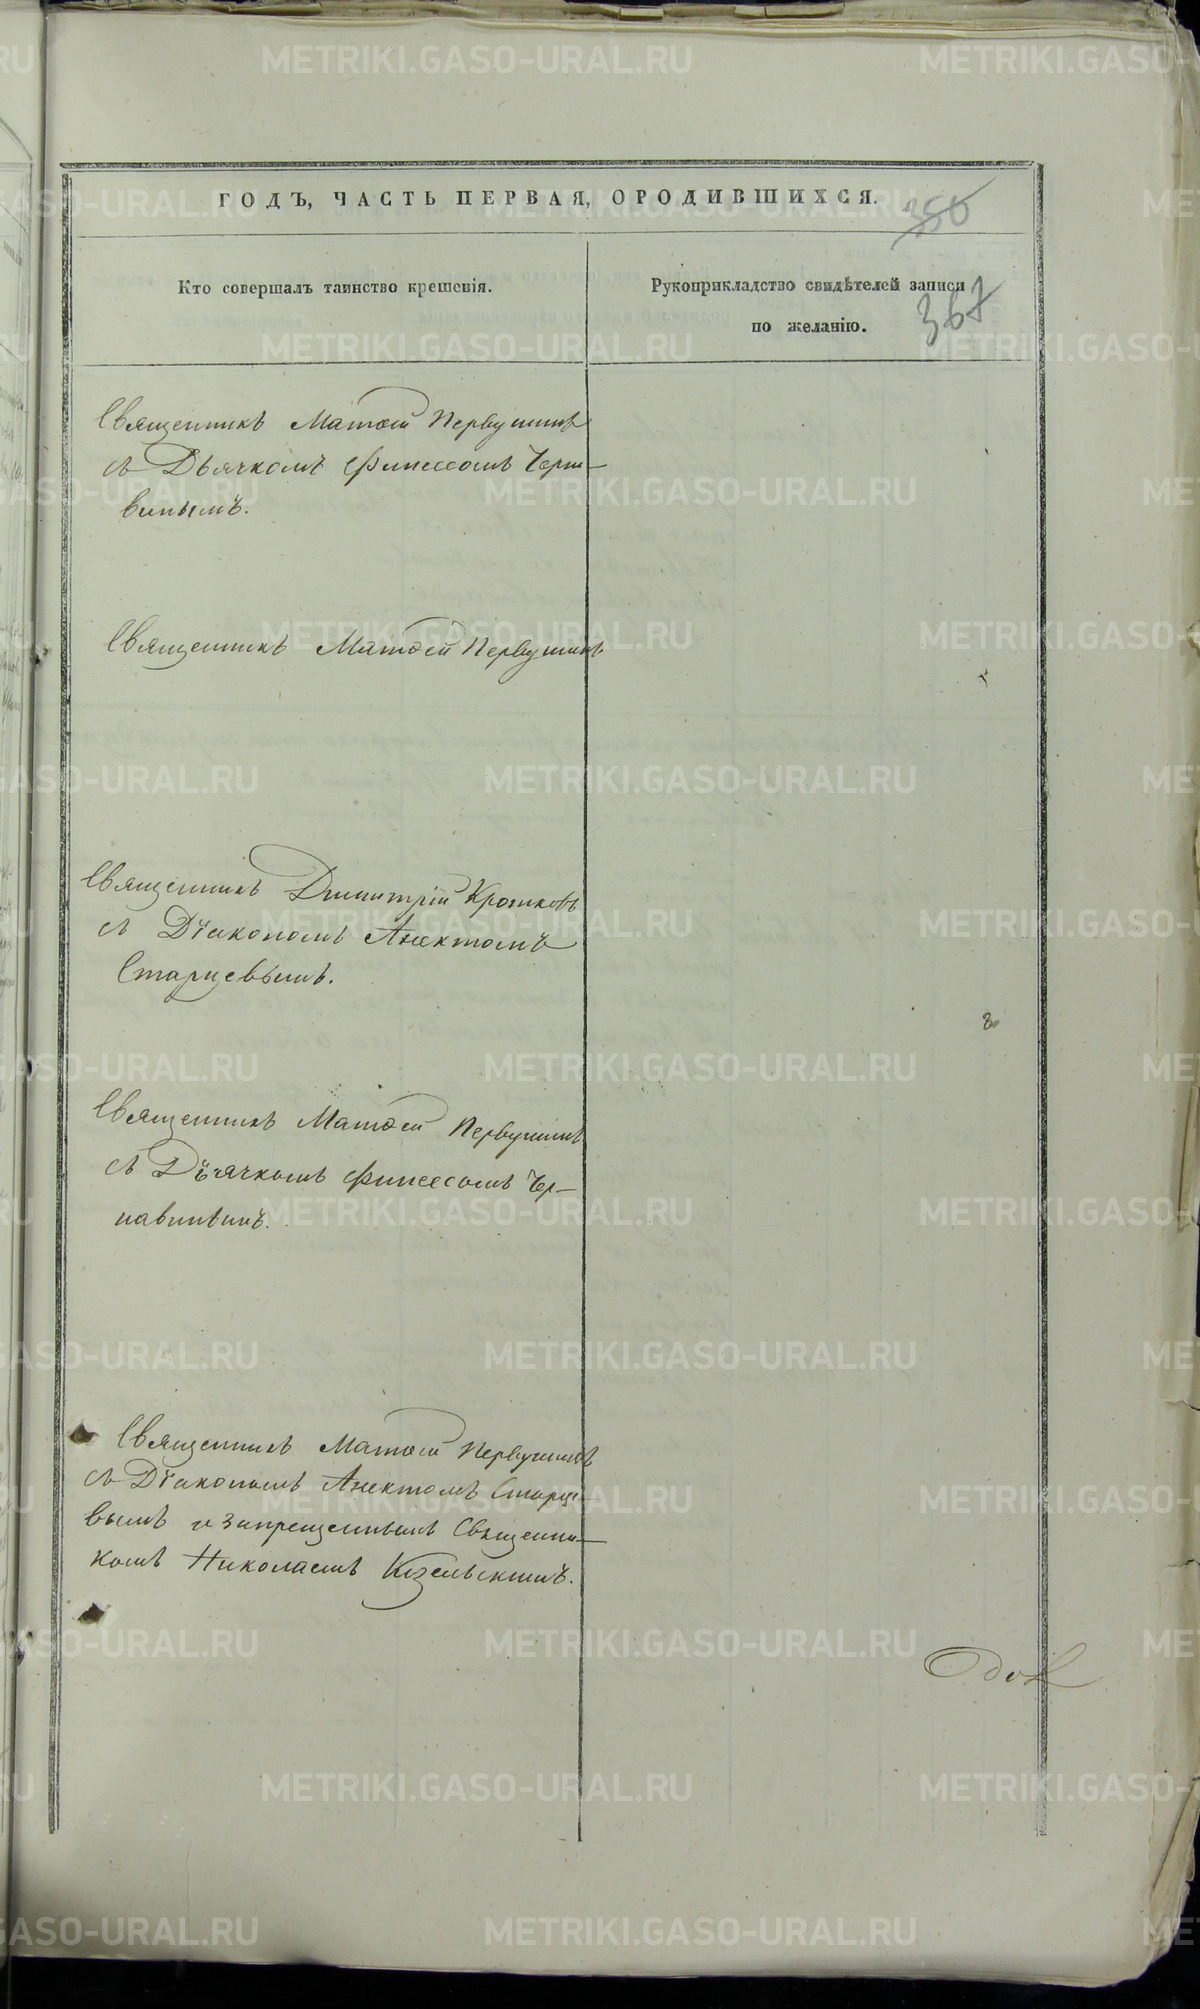 ГОДЪ, ЧАСТЬ ПЕРВАЯ, О РОДИВШИХСЯ.
350
Кто совершалъ таинство крещенія.
Рукоприкладство свидѣтелей записи
по желанію.
367
Священникъ Матѳей Первушинъ
съ Дьячкомъ Финеесомъ Черн-
винымъ.
Священникъ Матѳей Первушинъ
Священникъ Димитрій Кротковъ
съ Діакономъ Анектомъ
Старцевымъ.
Священникъ Матѳей Первушинъ
съ Дьячкомъ Финеесомъ Чер-
навинымъ.
Священникъ Матѳей Первушинъ
съ Діакономъ Анектомъ Старце-
вымъ и запрещеннымъ Священни-
комъ Николаемъ Кизельскимъ.
METRIKI.GASO-URAL.RU